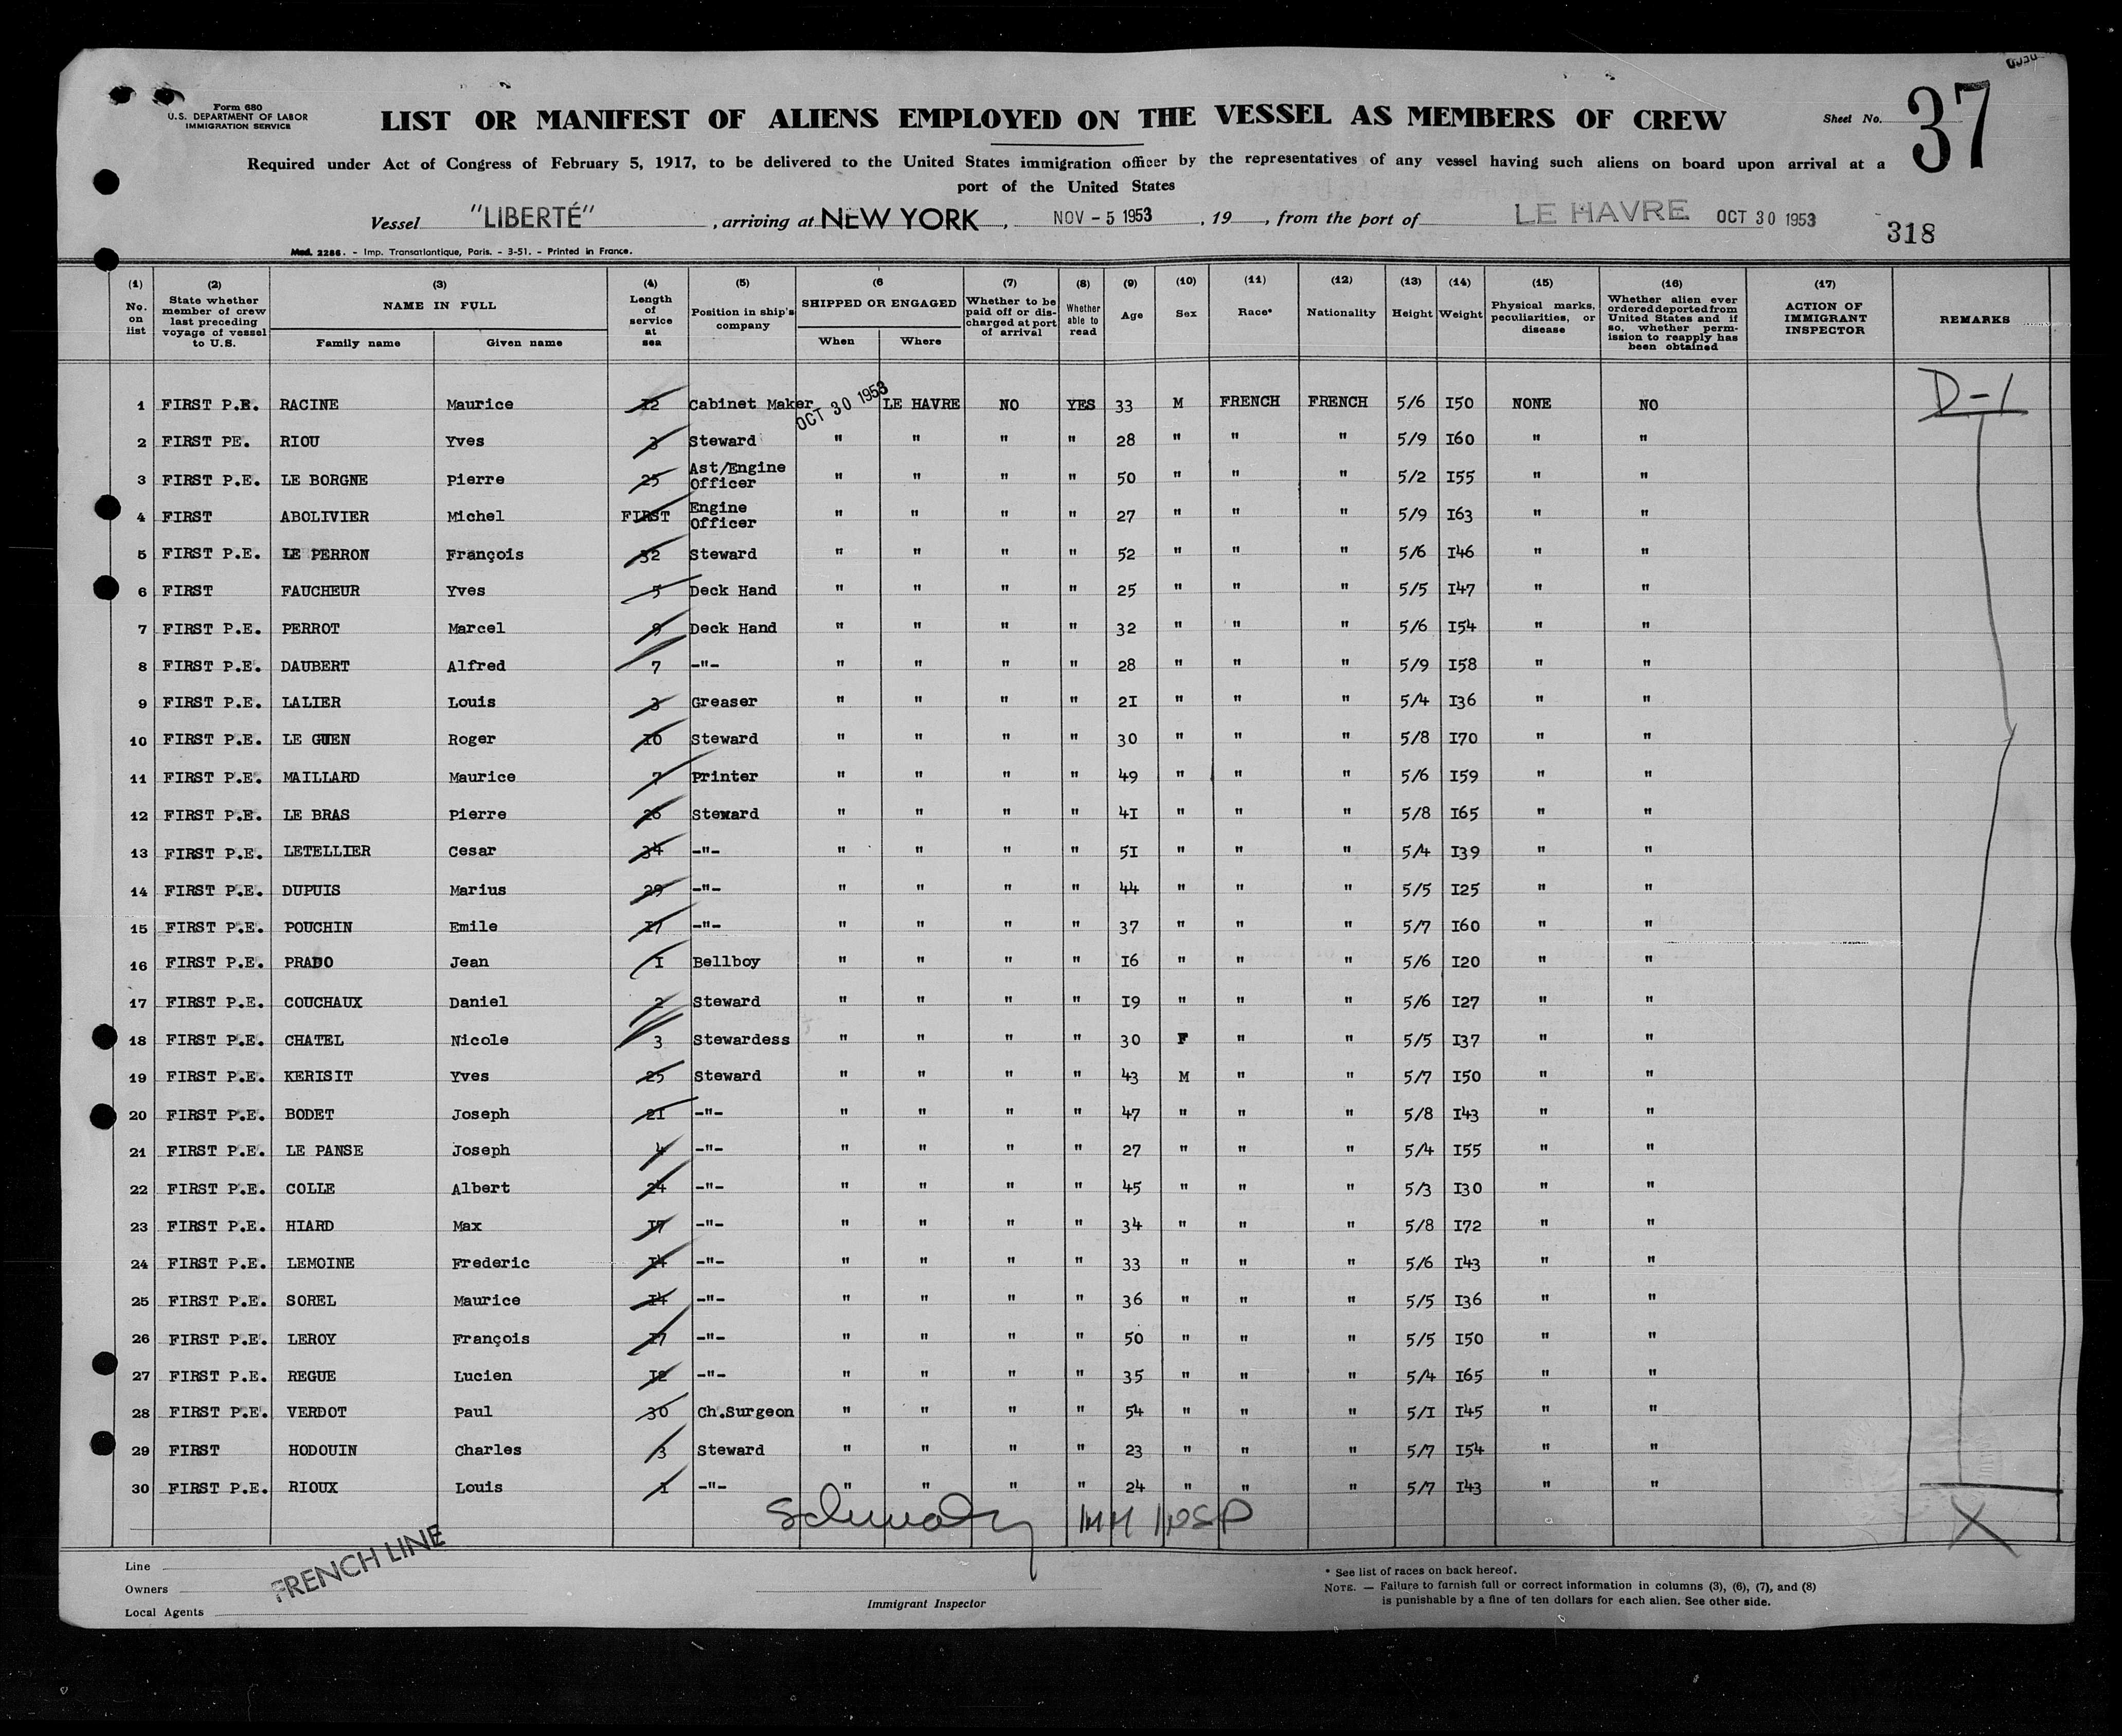 Form 680
U.S. DEPARTMENT OF LABOR
IMMIGRATION SERVICE
LIST OR MANIFEST OF ALIENS EMPLOYED ON THE VESSEL AS MEMBERS OF CREW
Sheet No. 37
Required under Act of Congress of February 5, 1917, to be delivered to the United States immigration officer by the representatives of any vessel having such aliens on board upon arrival at a
port of the United States
Vessel "LIBERTÉ" , arriving at NEW YORK , NOV - 5 1953 , 19 , from the port of LE HAVRE OCT 30 1953 318
Mod. 2286. - Imp. Transatlantique, Paris. - 3-51. - Printed in France.
(1) No. on list (2) State whether member of crew last preceding voyage of vessel to U.S. (3) NAME IN FULL Family name Given name (4) Length of service at sea (5) Position in ship's company (6 SHIPPED OR ENGAGED When Where (7) Whether to be paid off or discharged at port of arrival (8) Whether able to read (9) Age (10) Sex (11) Race* (12) Nationality (13) Height (14) Weight (15) Physical marks, peculiarities, or disease (16) Whether alien ever ordered deported from United States and if so, whether permission to reapply has been obtained (17) ACTION OF IMMIGRANT INSPECTOR REMARKS
1 FIRST P.E. RACINE Maurice 12 Cabinet Maker OCT 30 1953 LE HAVRE NO YES 33 M FRENCH FRENCH 5/6 I50 NONE NO D-1
2 FIRST PE. RIOU Yves 3 Steward " " " " 28 " " " 5/9 I60 " "
3 FIRST P.E. LE BORGNE Pierre 25 Ast/Engine Officer " " " " 50 " " " 5/2 I55 " "
4 FIRST ABOLIVIER Michel FIRST Engine Officer " " " " 27 " " " 5/9 I63 " "
5 FIRST P.E. LE PERRON François 32 Steward " " " " 52 " " " 5/6 I46 " "
6 FIRST FAUCHEUR Yves 5 Deck Hand " " " " 25 " " " 5/5 I47 " "
7 FIRST P.E. PERROT Marcel 9 Deck Hand " " " " 32 " " " 5/6 I54 " "
8 FIRST P.E. DAUBERT Alfred 7 -"- " " " " 28 " " " 5/9 I58 " "
9 FIRST P.E. LALIER Louis 3 Greaser " " " " 2I " " " 5/4 I36 " "
10 FIRST P.E. LE GUEN Roger I0 Steward " " " " 30 " " " 5/8 I70 " "
11 FIRST P.E. MAILLARD Maurice 7 Printer " " " " 49 " " " 5/6 I59 " "
12 FIRST P.E. LE BRAS Pierre 26 Steward " " " " 4I " " " 5/8 I65 " "
13 FIRST P.E. LETELLIER Cesar 34 -"- " " " " 5I " " " 5/4 I39 " "
14 FIRST P.E. DUPUIS Marius 29 -"- " " " " 44 " " " 5/5 I25 " "
15 FIRST P.E. POUCHIN Emile I7 -"- " " " " 37 " " " 5/7 I60 " "
16 FIRST P.E. PRADO Jean I Bellboy " " " " I6 " " " 5/6 I20 " "
17 FIRST P.E. COUCHAUX Daniel 2 Steward " " " " I9 " " " 5/6 I27 " "
18 FIRST P.E. CHATEL Nicole 3 Stewardess " " " " 30 F " " 5/5 I37 " "
19 FIRST P.E. KERISIT Yves 25 Steward " " " " 43 M " " 5/7 I50 " "
20 FIRST P.E. BODET Joseph 2I -"- " " " " 47 " " " 5/8 I43 " "
21 FIRST P.E. LE PANSE Joseph 4 -"- " " " " 27 " " " 5/4 I55 " "
22 FIRST P.E. COLLE Albert 24 -"- " " " " 45 " " " 5/3 I30 " "
23 FIRST P.E. HIARD Max I7 -"- " " " " 34 " " " 5/8 I72 " "
24 FIRST P.E. LEMOINE Frederic I4 -"- " " " " 33 " " " 5/6 I43 " "
25 FIRST P.E. SOREL Maurice I4 -"- " " " " 36 " " " 5/5 I36 " "
26 FIRST P.E. LEROY François I7 -"- " " " " 50 " " " 5/5 I50 " "
27 FIRST P.E. REGUE Lucien I2 -"- " " " " 35 " " " 5/4 I65 " "
28 FIRST P.E. VERDOT Paul 30 Ch.Surgeon " " " " 54 " " " 5/I I45 " "
29 FIRST HODOUIN Charles 3 Steward " " " " 23 " " " 5/7 I54 " "
30 FIRST P.E. RIOUX Louis I -"- " " " " 24 " " " 5/7 I43 " "
X
Line
Owners
Local Agents
FRENCH LINE
Immigrant Inspector
* See list of races on back hereof.
NOTE. — Failure to furnish full or correct information in columns (3), (6), (7), and (8)
is punishable by a fine of ten dollars for each alien. See other side.